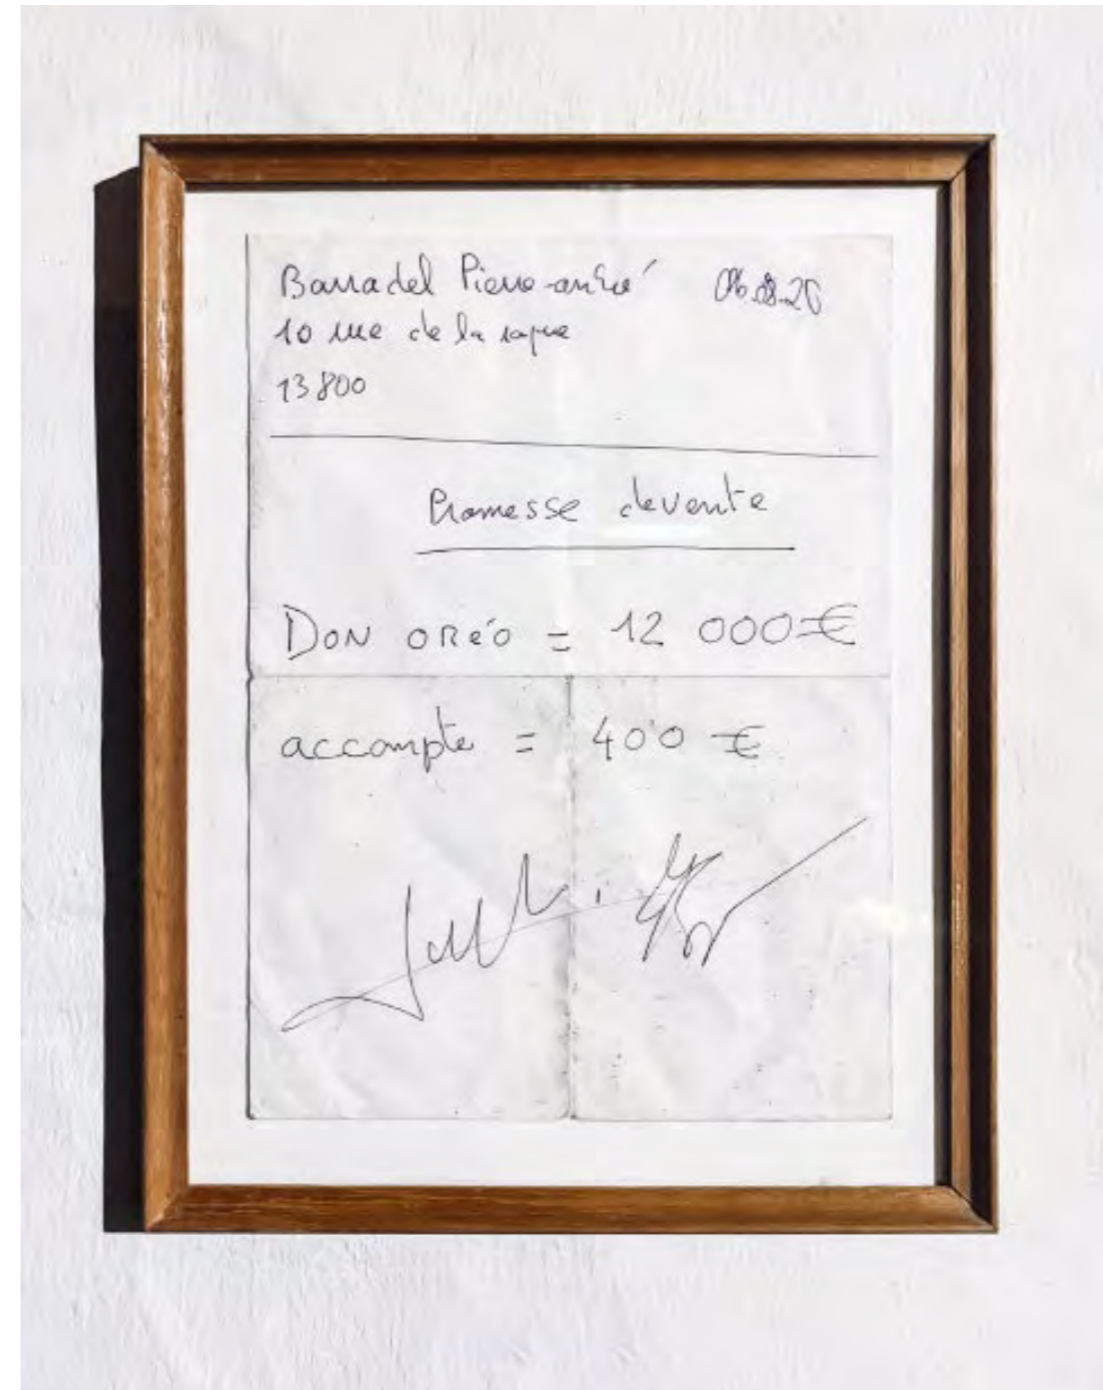 Barradel Pierre-andré 06.08.20
10 rue de la
13800
Promesse de vente
DON ORéO = 12 000 €
accompte = 400 €